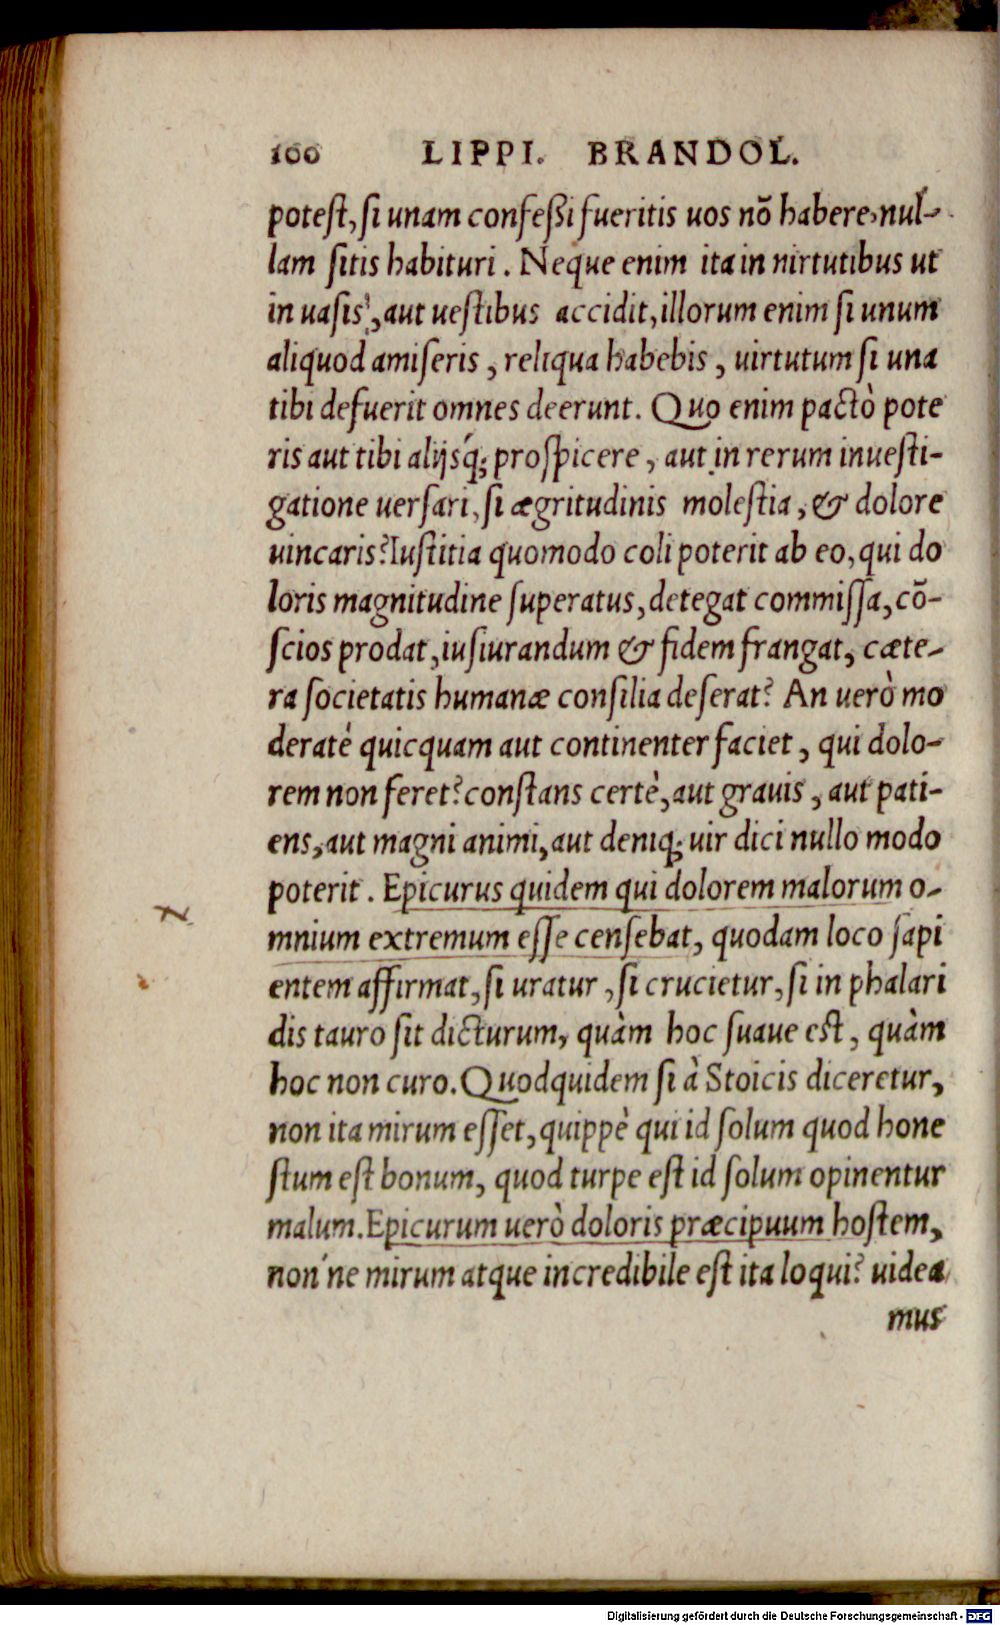 100 LIPPI. BRANDOL.
potest, si unam confeßi fueritis uos nõ habere, nul-
lam sitis habituri. Neque enim ita in nirtutibus ut
in uasis, aut uestibus accidit, illorum enim si unum
aliquod amiseris, reliqua habebis, uirtutum si una
tibi defuerit omnes deerunt. Quo enim pactò pote
ris aut tibi alijsq́; prospicere, aut in rerum inuesti-
gatione uersari, si ægritudinis molestia, & dolore
uincaris? Iustitia quomodo coli poterit ab eo, qui do
loris magnitudine superatus, detegat commissa, cõ-
scios prodat, iusiurandum & fidem frangat, cæte-
ra societatis humanæ consilia deserat? An uerò mo
deraté quicquam aut continenter faciet, qui dolo-
rem non feret? constans certè, aut grauis, aut pati-
ens, aut magni animi, aut deniq; uir dici nullo modo
poterit. Epicurus quidem qui dolorem malorum o-
mnium extremum esse censebat, quodam loco sapi
entem affirmat, si uratur, si crucietur, si in phalari
dis tauro sit dicturum, quàm hoc suaue est, quàm
hoc non curo. Quodquidem si à Stoicis diceretur,
non ita mirum esset, quippè qui id solum quod hone
stum est bonum, quod turpe est id solum opinentur
malum. Epicurum uerò doloris præcipuum hostem,
non ́ne mirum atque incredibile est ita loqui? uidea
mus
Digitalisierung gefördert durch die Deutsche Forschungsgemeinschaft - DFG